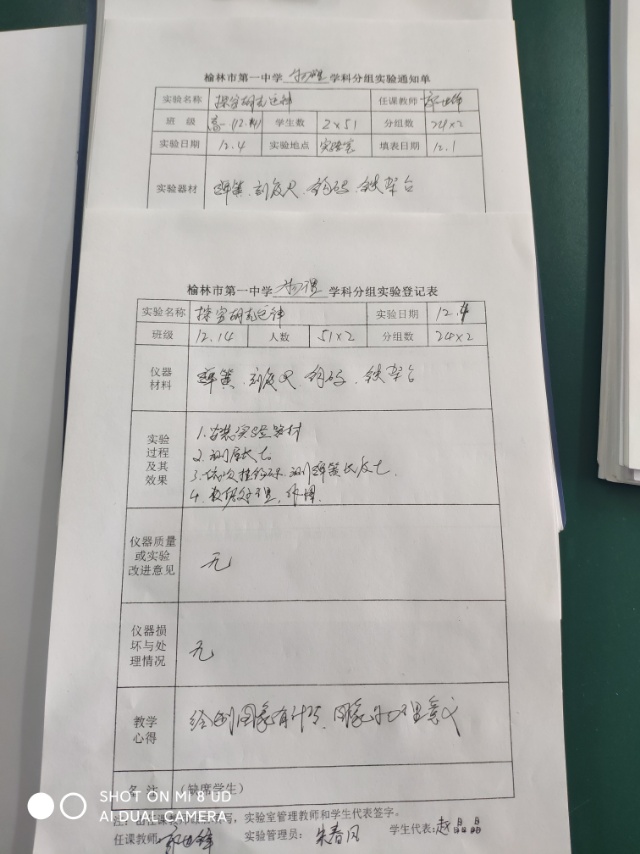 榆林市第一中学 物理 学科分组实验通知单
实验名称 探究胡克定律 任课教师
班 级 高一(12.14) 学生数 2×51 分组数 24×2
实验日期 12.4 实验地点 实验室 填表日期 12.1
实验器材 弹簧、刻度尺、钩码、铁架台
榆林市第一中学 物理 学科分组实验登记表
实验名称 探究胡克定律 实验日期 12.4
班级 12.14 人数 51×2 分组数 24×2
仪器
材料
弹簧、刻度尺、钩码、铁架台
实验
过程
及其
效果
1.安装实验器材
2.测原长l₀
3.依次挂钩码,测弹簧长度l.
4.数据处理,作图.
仪器质量
或实验
改进意见
无
仪器损
坏与处
理情况
无
教学
心得
绘制图象有计巧、图象的物理意义
备 注 (缺席学生)
写,实验室管理教师和学生代表签字。
任课教师: 实验管理员: 朱春风 学生代表:赵晶晶
SHOT ON MI 8 UD
AI DUAL CAMERA